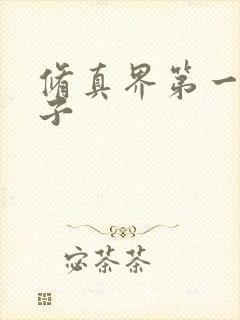 脩真界第一
子
宓茶茶